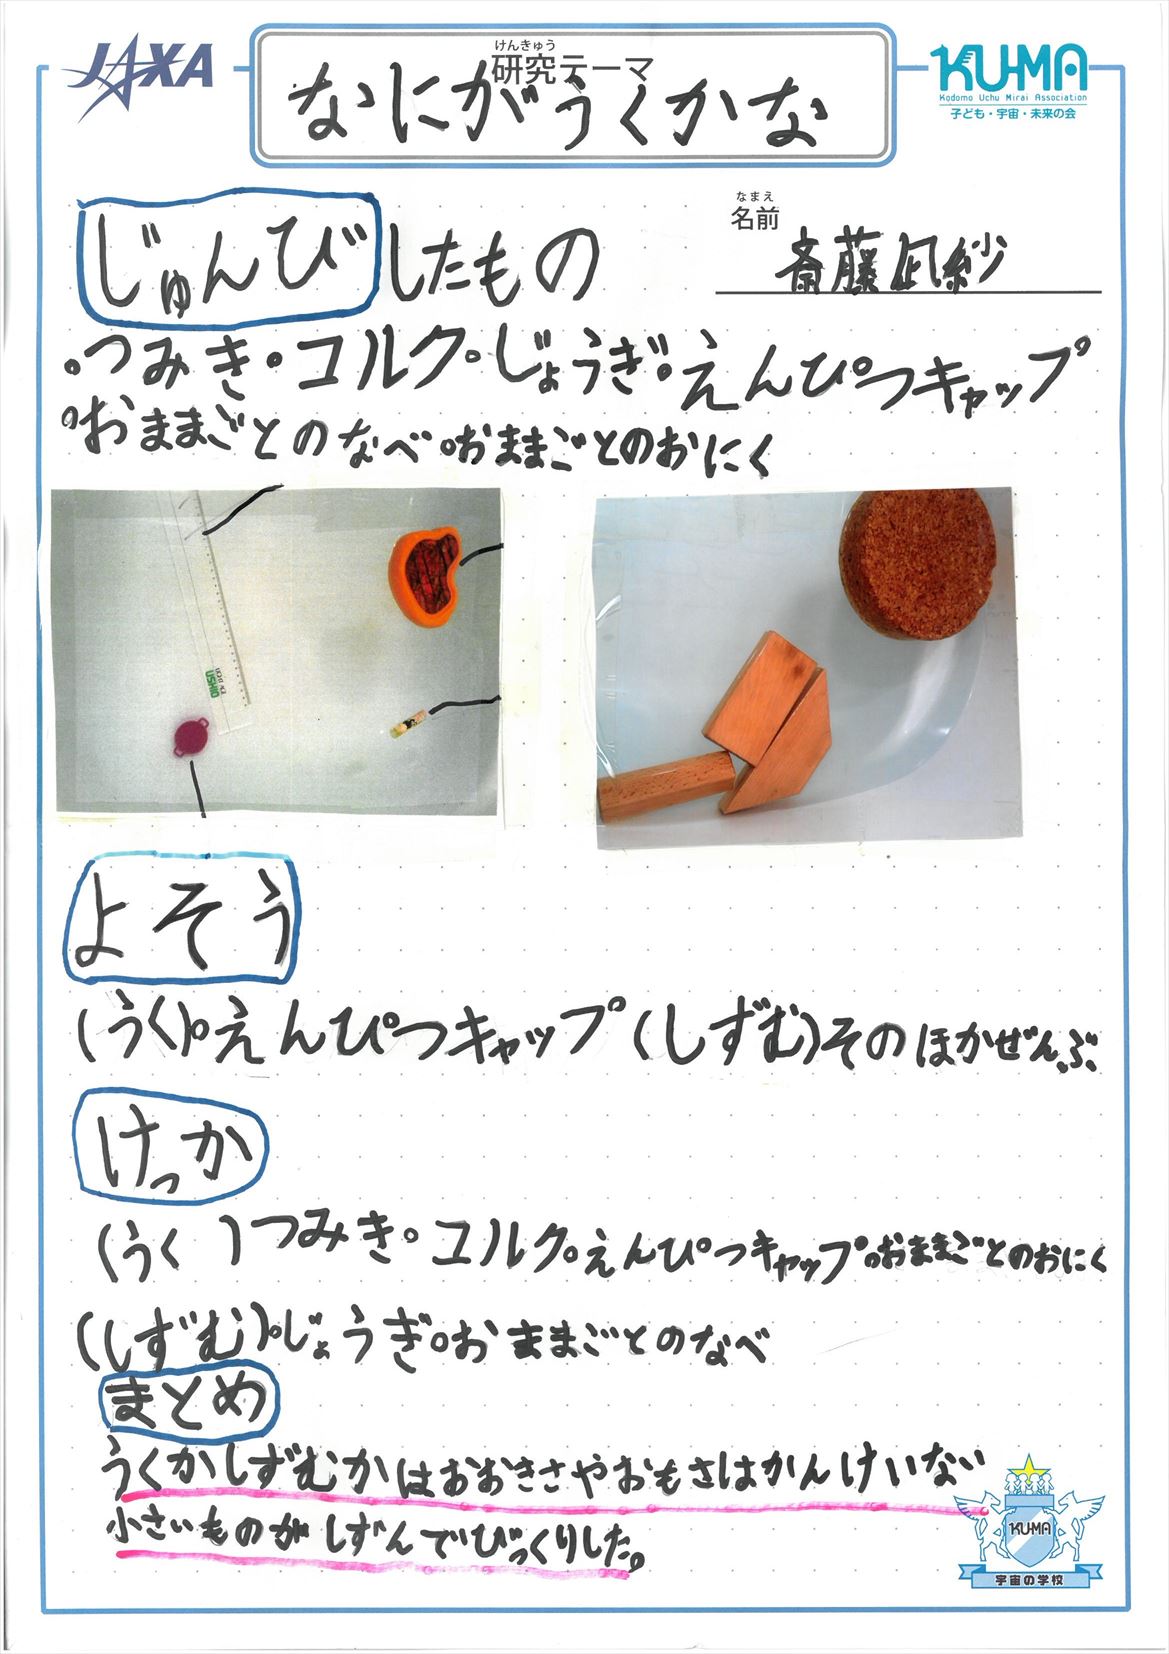 JAXA
けんきゅう
研究テーマ
なにがうくかな
KU-MA
Kodomo Uchu Mirai Association
子ども・宇宙・未来の会
なまえ
名前
斎藤凪紗
じゅんびしたもの
・つみき・コルク・じょうぎ・えんぴつキャップ
・おままごとのなべ・おままごとのおにく
よそう
(うく)・えんぴつキャップ(しずむ)そのほかぜんぶ
けっか
(うく)つみき・コルク・えんぴつキャップ・おままごとのおにく
(しずむ)・じょうぎ・おままごとのなべ
まとめ
うくかしずむかはおおきさやおもさはかんけいない
小さいものがしずんでびっくりした。
KU-MA
宇宙の学校